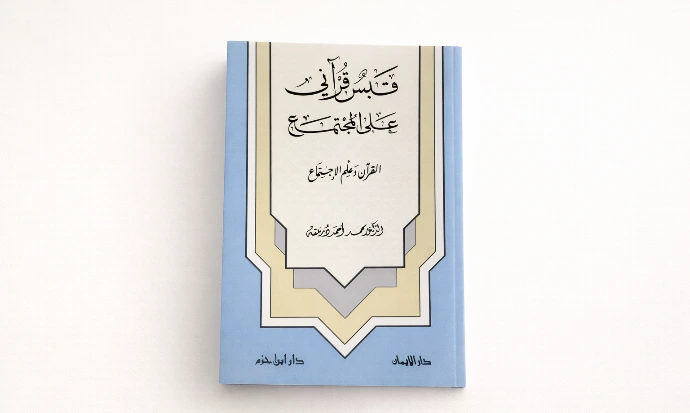 قَبَسٌ قُرْآني
عَلى المُجْتَمَاع
القرآن وَعِلْم الإجتِمَاع
الدكتور محمد أحمد درنيقه
دار الإيمان
دار ابن حزم